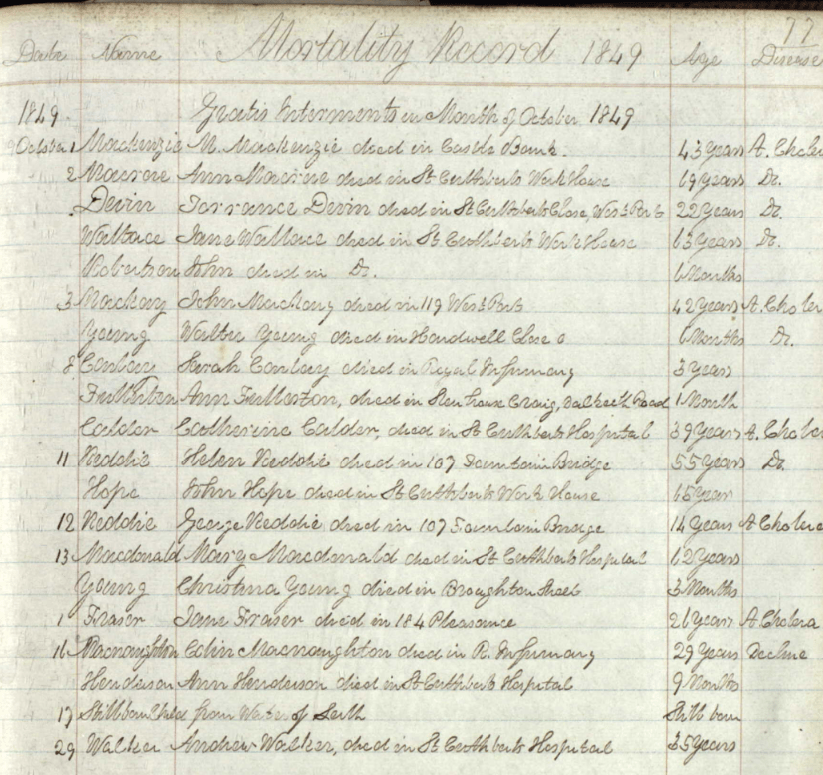 77
Date Name Mortality Record 1849 Age Disease
1849. Gratis Interments in Month of October 1849
October 1 Mackenzie M. Mackenzie died in Castle Bank. 43 years A. Choler
2 Macrae Ann Macrae died in St Cuthberts Work House 69 years Do.
Devin Torrance Devin died in St Cuthberts Close, West Port 22 years Do.
Wallace Jane Wallace died in St Cuthberts Work House 63 years Do.
Robertson John died in Do. 6 Months
3 Mackay John Mackay died in 119 West Port 42 years A. Choler
Young Walter Young died in Hardwell Close 6 Months Do.
8 Conlay Sarah Conlay died in Royal Infirmary 3 years
Fullerton Ann Fullerton, died in Craig, Dalkeith Road 1 Month
Calder Catherine Calder, died in St Cuthberts Hospital 39 years A. Choler
11 Keddie Helen Keddie died in 107 Fountain Bridge 55 years Do.
Hope John Hope died in St Cuthberts Work House years
12 Keddie George Keddie died in 107 Fountain Bridge 14 years A Cholera
13 Macdonald Mary Macdonald died in St Cuthberts Hospital 62 years
Young Christina Young died in Broughton Street 3 Months
1 Fraser Jane Fraser died in 184 Pleasance 26 years A Cholera
16 Macnaughton Colin Macnaughton died in R. Infirmary 29 years Decline
Henderson Ann Henderson died in St Cuthberts Hospital 9 Months
17 Stillborn Child from Water of Leith Still born
29 Walker Andrew Walker, died in St Cuthberts Hospital 35 years